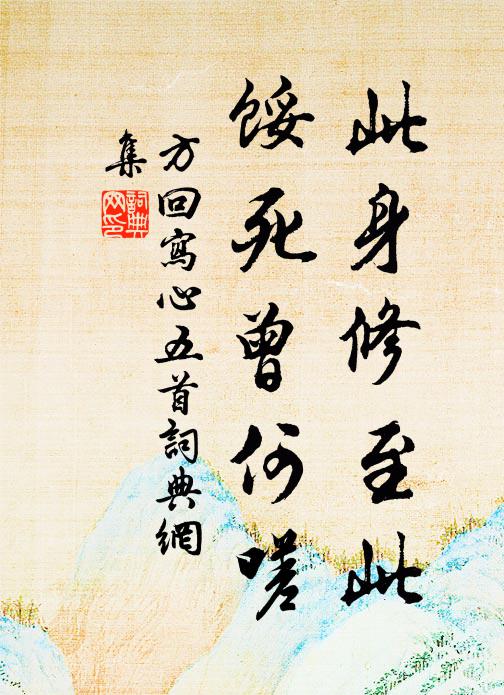 此身修至此
餒死曾何嗟
方回寫心五首詞典網
集
詞典
网印